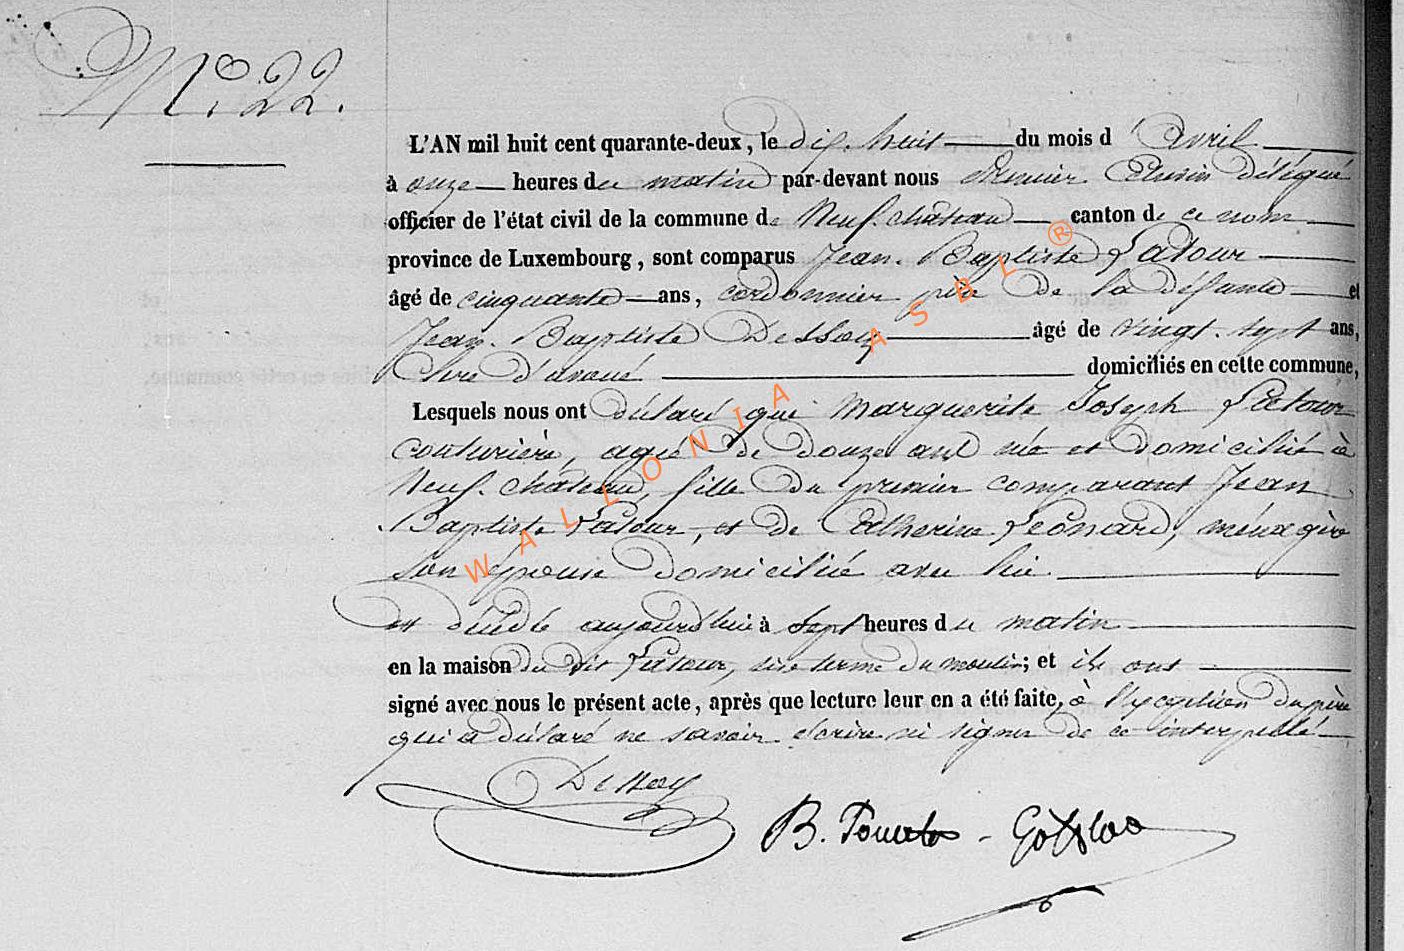 N.° 22.
L'AN mil huit cent quarante-deux, le dix-huit du mois d'Avril
à onze heures du matin par-devant nous Premier Echevin délégué
officier de l'état civil de la commune de Neufchâteau canton de ce nom
province de Luxembourg, sont comparus Jean Baptiste Latour
âgé de cinquante ans, cordonnier père de la défunte et
Jean-Baptiste Dessoy âgé de vingt-sept ans,
Clerc d'avoué domiciliés en cette commune,
Lesquels nous ont déclaré que Marguerite Joseph Latour
couturière, agée de douze ans née et domiciliée à
Neufchateau, fille du premier comparant Jean
Baptiste Latour, et de Catherine Leonard, ménagère
son épouse domiciliée avec lui.
est décédée aujourd'hui à sept heures du matin
en la maison du dit Latour, sise terme du moulin; et ils ont
signé avec nous le présent acte, après que lecture leur en a été faite, à l'exception du père
qui a déclaré ne savoir écrire ni signer de ce interpellé
Dessoy
B.
WALLONIA ASBL ®